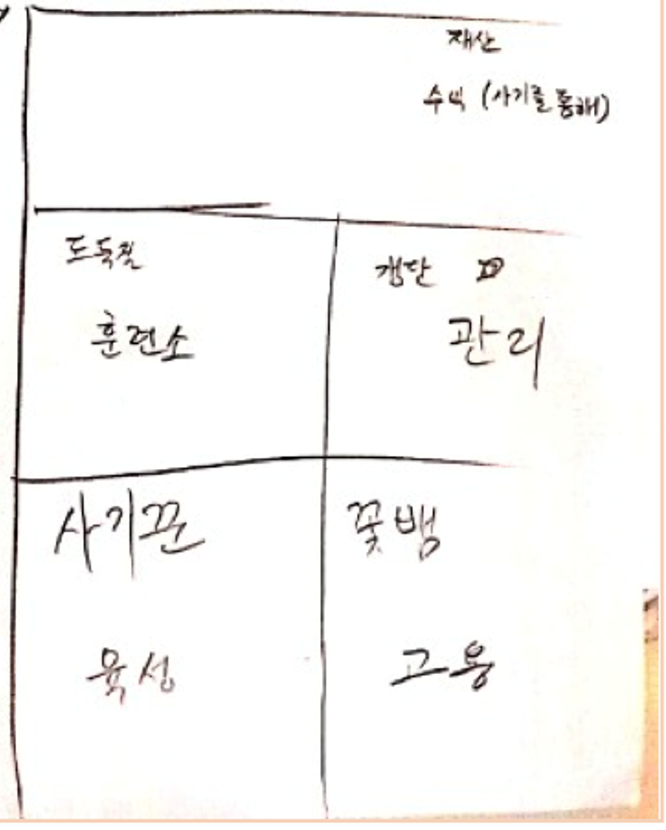 재산
수익 (사기를 통해)
도둑질
훈련소
갱단
관리
사기꾼
육성
꽃뱀
고용